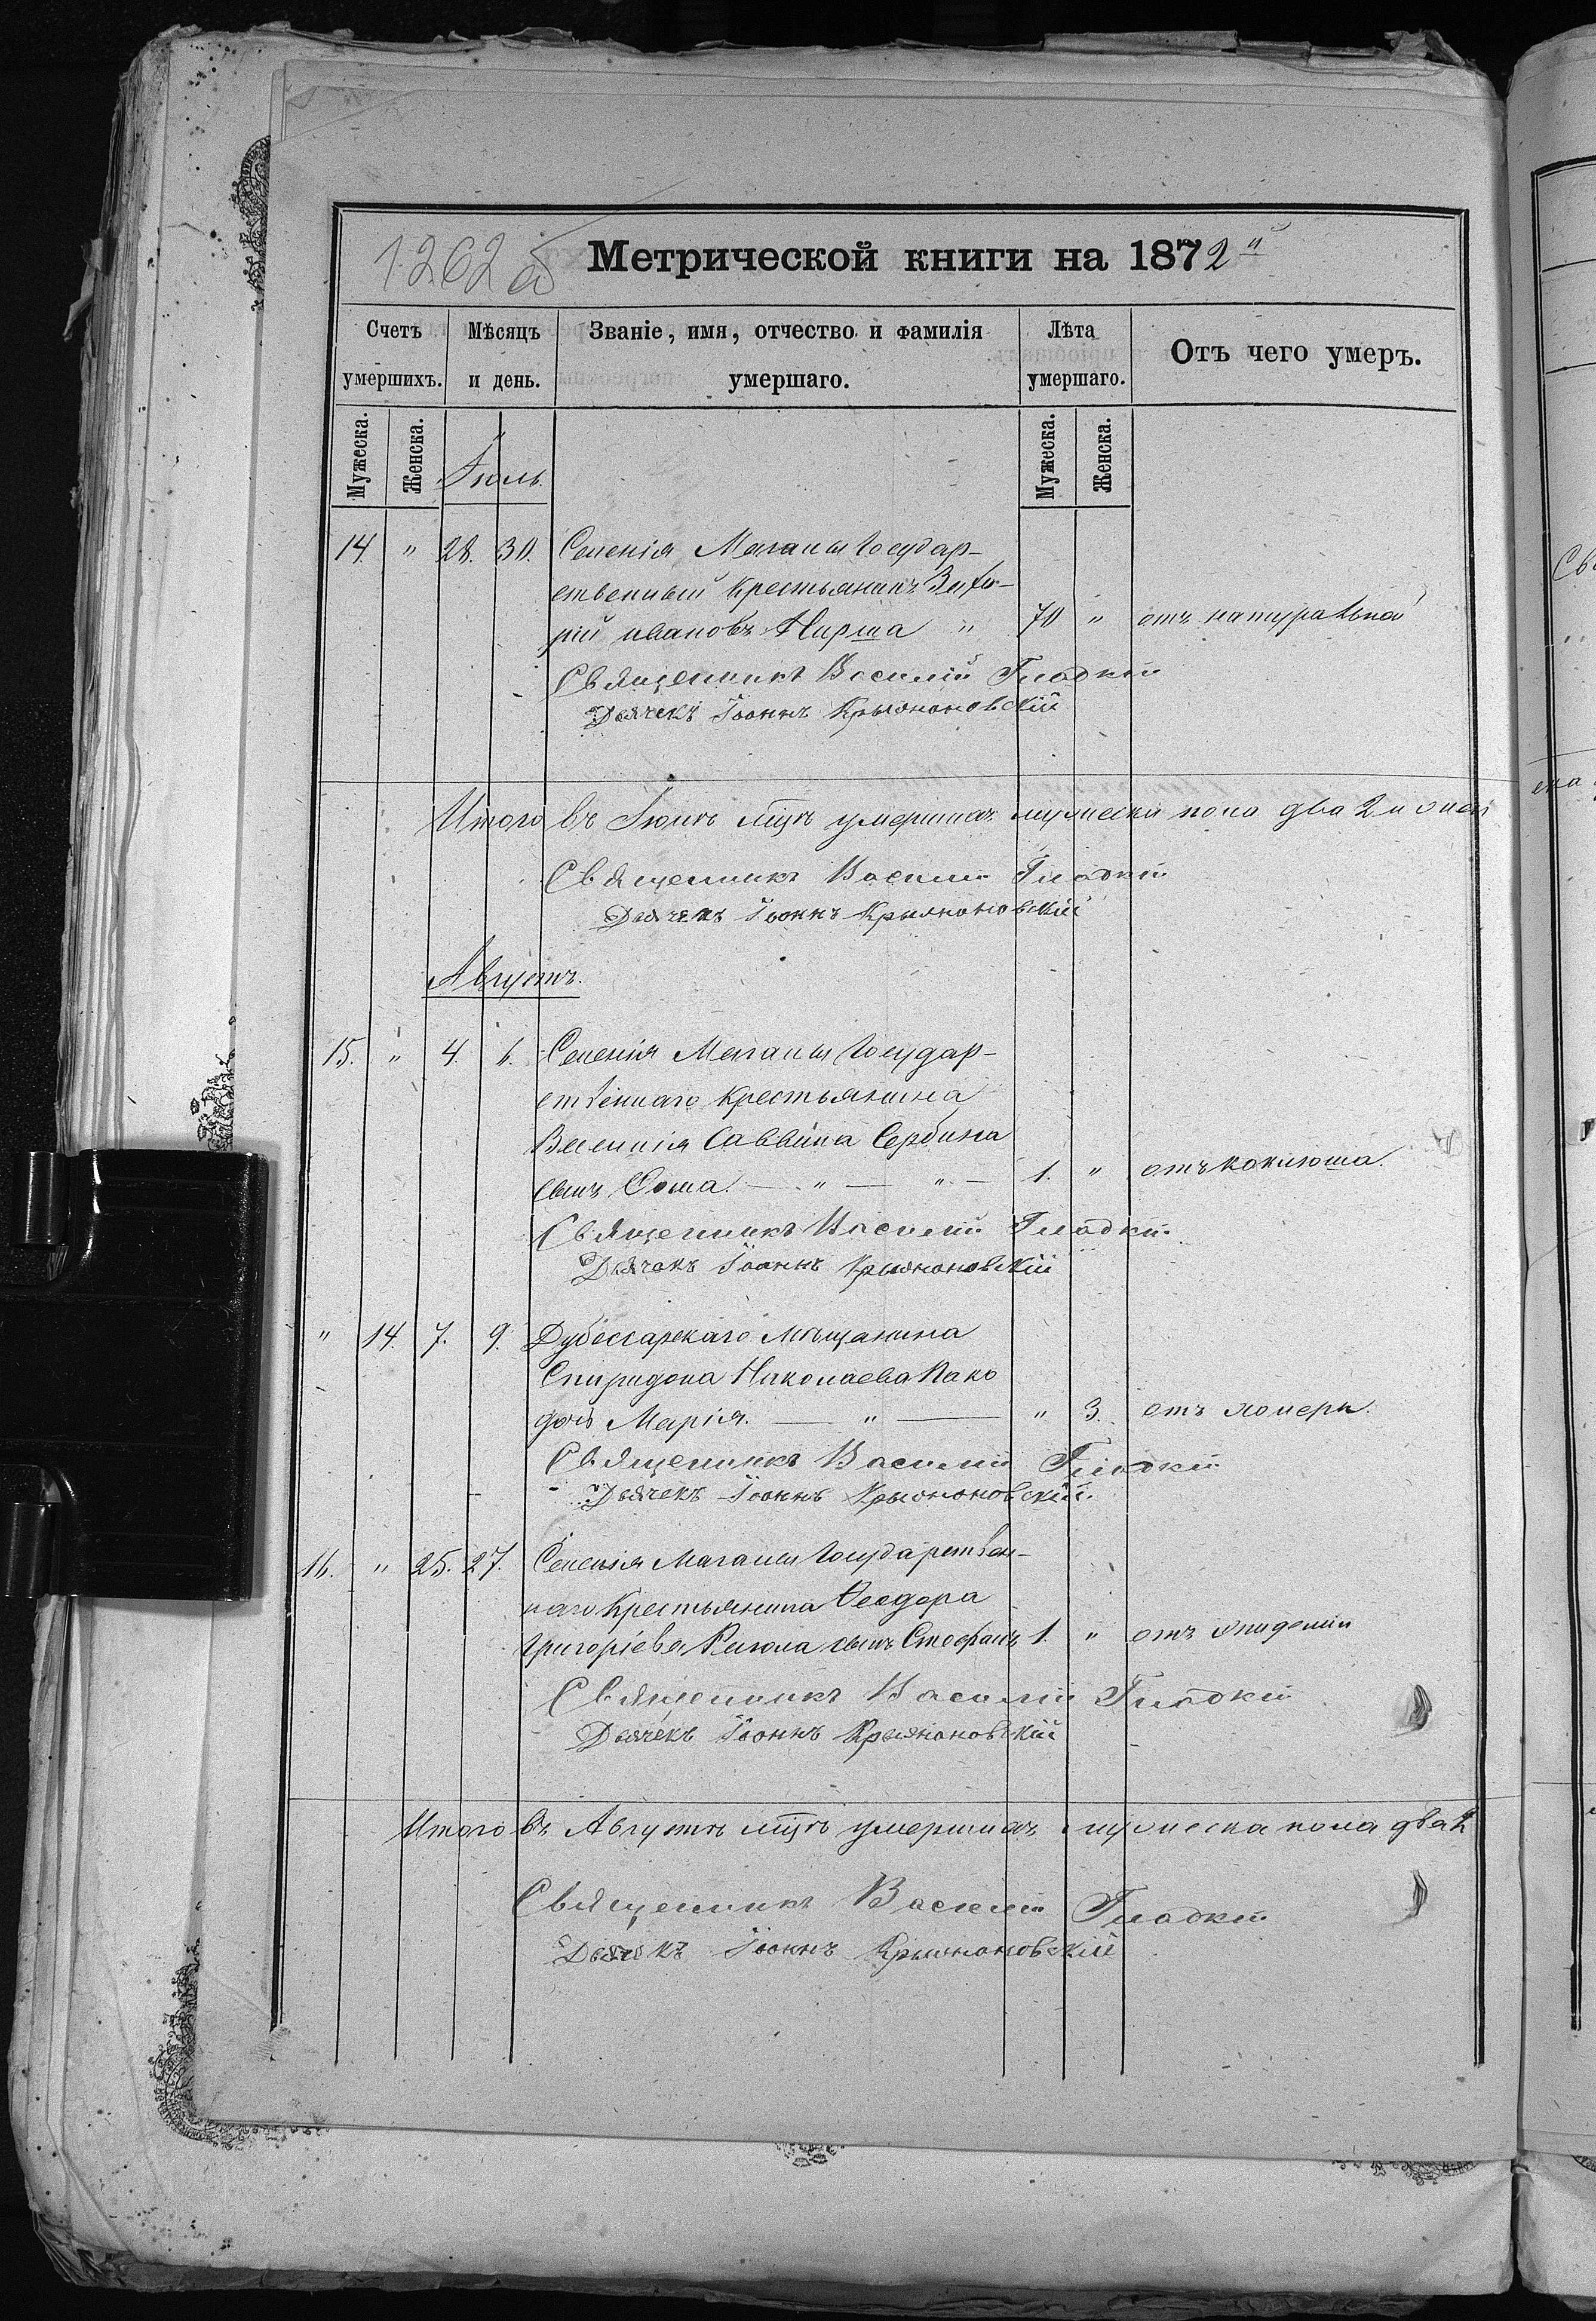 1262 об
Метрической книги на 1872й
Счетъ умершихъ.
Мѣсяцъ и день.
Званіе, имя, отчество и фамилія умершаго.
Лѣта умершаго.
Отъ чего умеръ.
Мужеска. Женска. Іюль. Мужеска. Женска.
14. " 28. 30. Селенія Маганы Государ-
ственный крестьянинъ
рій Ивановъ " 70 " отъ натуральной
Священникъ Василій Гладкій
Дьячекъ Іоаннъ Крыжановскій
Итого въ Іюлѣ мцѣ умершихъ мужеска пола два 2 и
Священникъ Василій Гладкій
Дьячекъ Іоаннъ Крыжановскій
Августъ.
15. " 4. 6. Селенія Маганы Государ-
ственнаго крестьянина
Василія Саввина Сербина
сынъ Ѳома. — " — " — 1. " отъ коклюша.
Священникъ Василій Гладкій
Дьячекъ Іоаннъ Крыжановскій
" 14. 7. 9. Дубоссарскаго мѣщанина
Спиридона Николаева
дочь Марія. — " — " 3. отъ холеры.
Священникъ Василій Гладкій
Дьячекъ Іоаннъ Крыжановскій.
16. " 25. 27. Селенія Маганы Государствен-
наго крестьянина Ѳеодора
Григоріева сынъ Стефанъ 1. " отъ эпидеміи
Священникъ Василій Гладкій
Дьячекъ Іоаннъ Крыжановскій
Итого въ Августѣ мцѣ умершихъ мужеска пола два 2
Священникъ Василій Гладкій
Дьячекъ Іоаннъ Крыжановскій